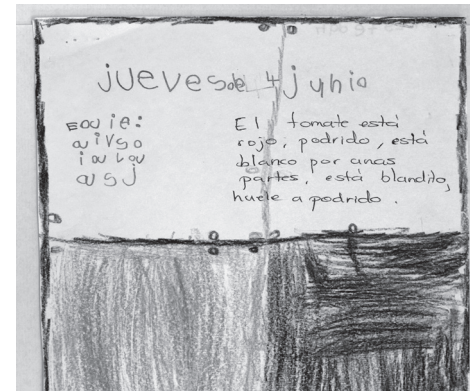 jueves de 4 junio
EOVIE:
aivso
iovlov
avsJ
El tomate está
rojo, podrido, está
blanco por unas
partes, está blandito,
huele a podrido.